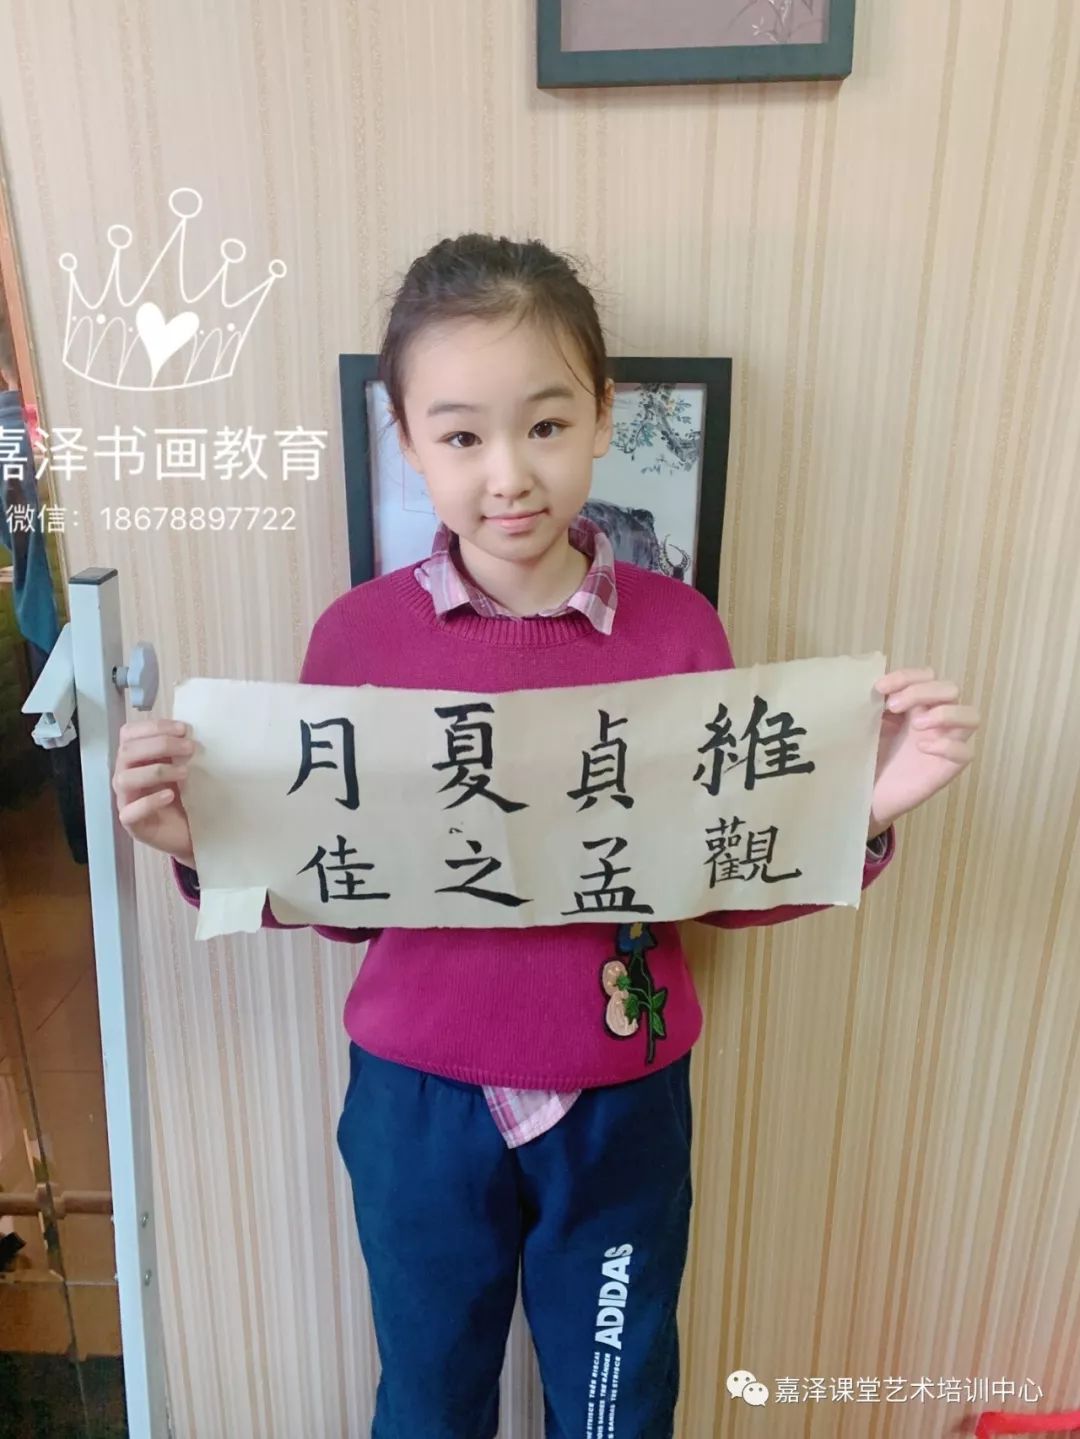 嘉泽书画教育
微信：18678897722
維觀
貞孟
夏之
月佳
ADIDAS
嘉泽课堂艺术培训中心